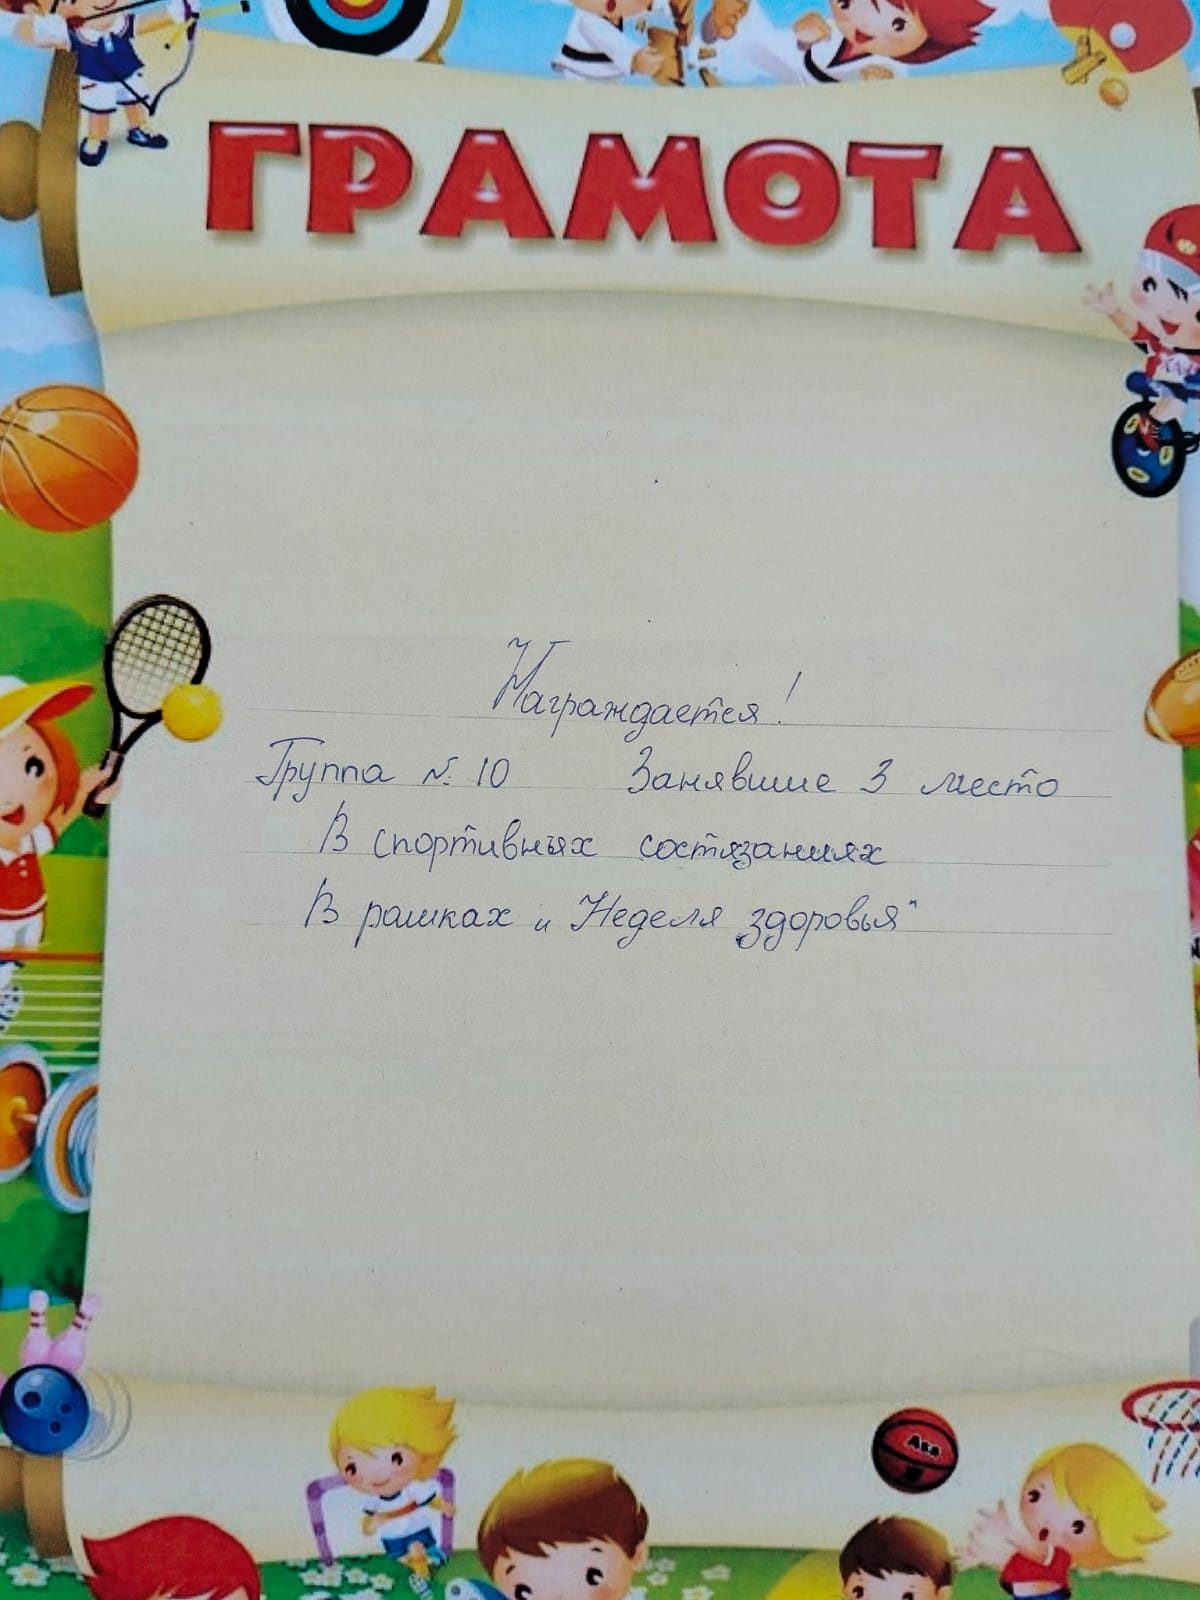 ГРАМОТА
Награждается!
Группа № 10 Занявшие 3 место
В спортивных состязаниях
В рамках „Неделя здоровья"